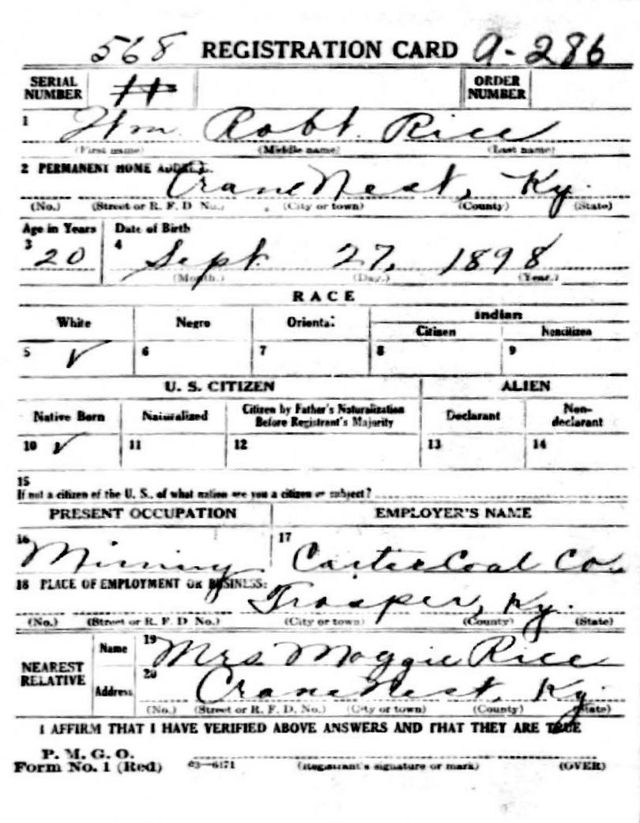 568 REGISTRATION CARD A-286
SERIAL NUMBER ORDER NUMBER
1 Wm. Robt. Rice
(First name) (Middle name) (Last name)
2 PERMANENT HOME ADDRESS:
Crane Nest, Ky.
(No.) (Street or R. F. D No.) (City or town) (County) (State)
Age in Years Date of Birth
3 20 4 Sept. 27, 1898
(Month.) (Day.) (Year.)
RACE
White Negro Oriental Indian
Citizen Noncitizen
5 ✓ 6 7 8 9
U. S. CITIZEN ALIEN
Native Born Naturalized Citizen by Father's Naturalization Before Registrant's Majority Declarant Non-declarant
10 ✓ 11 12 13 14
15
If not a citizen of the U. S., of what nation are you a citizen or subject?
PRESENT OCCUPATION EMPLOYER'S NAME
16 Mining 17 Carter Coal Co.
18 PLACE OF EMPLOYMENT OR BUSINESS:
Trosper, Ky.
(No.) (Street or R. F. D No.) (City or town) (County) (State)
NEAREST RELATIVE
Name 19 Mrs. Maggie Rice
Address 20 Crane Nest, Ky.
(No.) (Street or R. F. D. No.) (City or town) (County) (State)
I AFFIRM THAT I HAVE VERIFIED ABOVE ANSWERS AND THAT THEY ARE TRUE
P. M. G. O.
Form No. 1 (Red) 03—6171 (Registrant's signature or mark) (OVER)